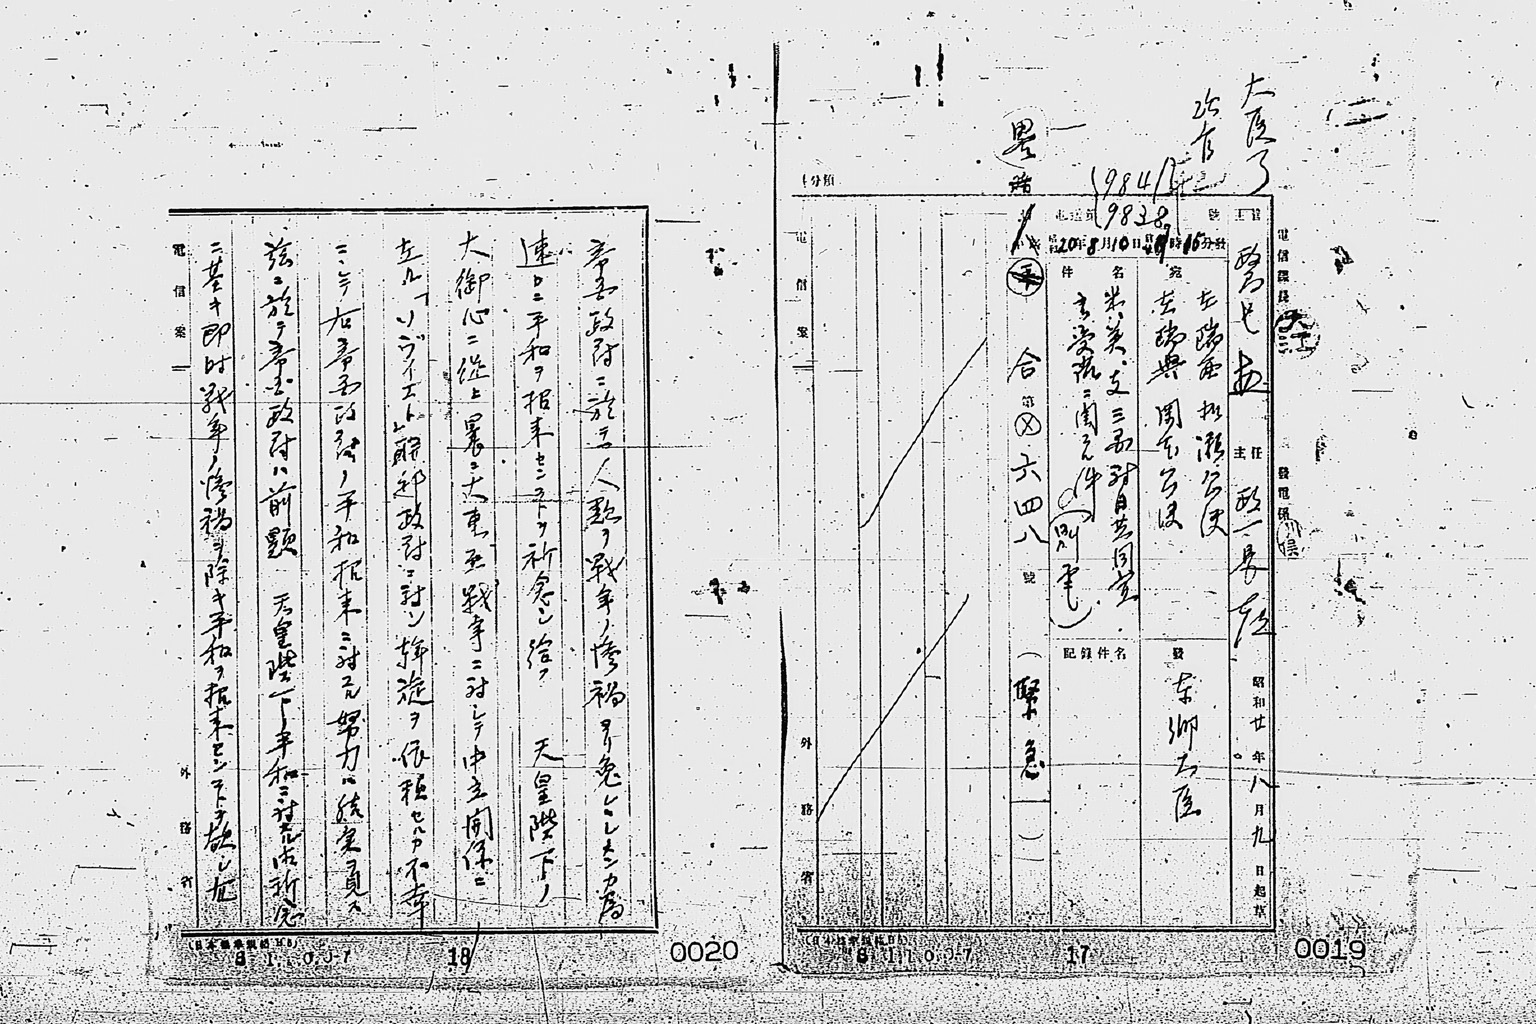 大臣
次官
暗
9841
9838
電送第 號
昭和20年8月10日 時15分發
電信課長
發電係
主管
主任
政一長
昭和廿年八月九日起草
宛
在瑞西 加瀬公使
在瑞典 岡本公使
發
東郷大臣
件名
米、英、支三国対日共同宣
言受諾ニ関スル件
(別電)
記録件名
合第六四八號
(緊急)
電信案
外務省
17
0019
帝国政府ニ於テハ人類ヲ戦争ノ惨禍ヨリ免レシメンカ為
速カニ平和ヲ招来センコトヲ祈念シ給フ 天皇陛下ノ
大御心ニ従ヒ曩ニ大東亜戦争ニ対シテ中立関係ニ
在ル「ソヴィエト」聯邦政府ニ対シ斡旋ヲ依頼セルカ不幸
ニシテ右帝国政府ノ平和招来ニ対スル努力ハ結実ヲ見ス
茲ニ於テ帝国政府ハ前顕 天皇陛下ノ平和ニ対スル御祈念
ニ基キ即時戦争ノ惨禍ヲ除キ平和ヲ招来センコトヲ欲シ左
電信案
外務省
18
0020